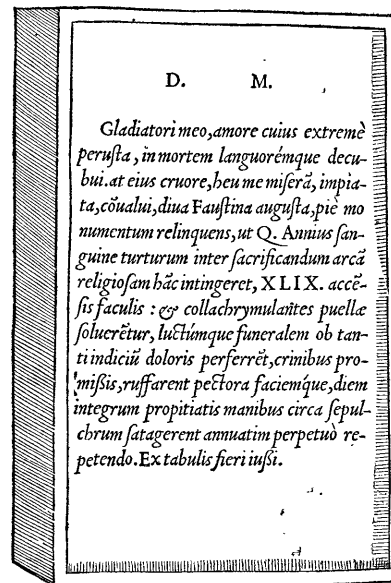 D. M.
Gladiatori meo, amore cuius extremè
peruſta, in mortem languorémque decu-
bui. at eius cruore, heu me miſerā, impia-
ta, cōualui, diua Fauſtina auguſta, piè mo
numentum relinquens, ut Q. Annius ſan-
guine turturum inter ſacrificandum arcā
religioſam hāc intingeret, XLIX. accē-
ſis faculis: & collachrymulātes puellæ
ſoluerētur, luctúmque funeralem ob tan-
ti indiciū doloris perferrēt, crinibus pro-
miſſis, ruffarent pectora faciemque, diem
integrum propitiatis manibus circa ſepul-
chrum ſatagerent annuatim perpetuò re-
petendo. Ex tabulis fieri iuſſi.